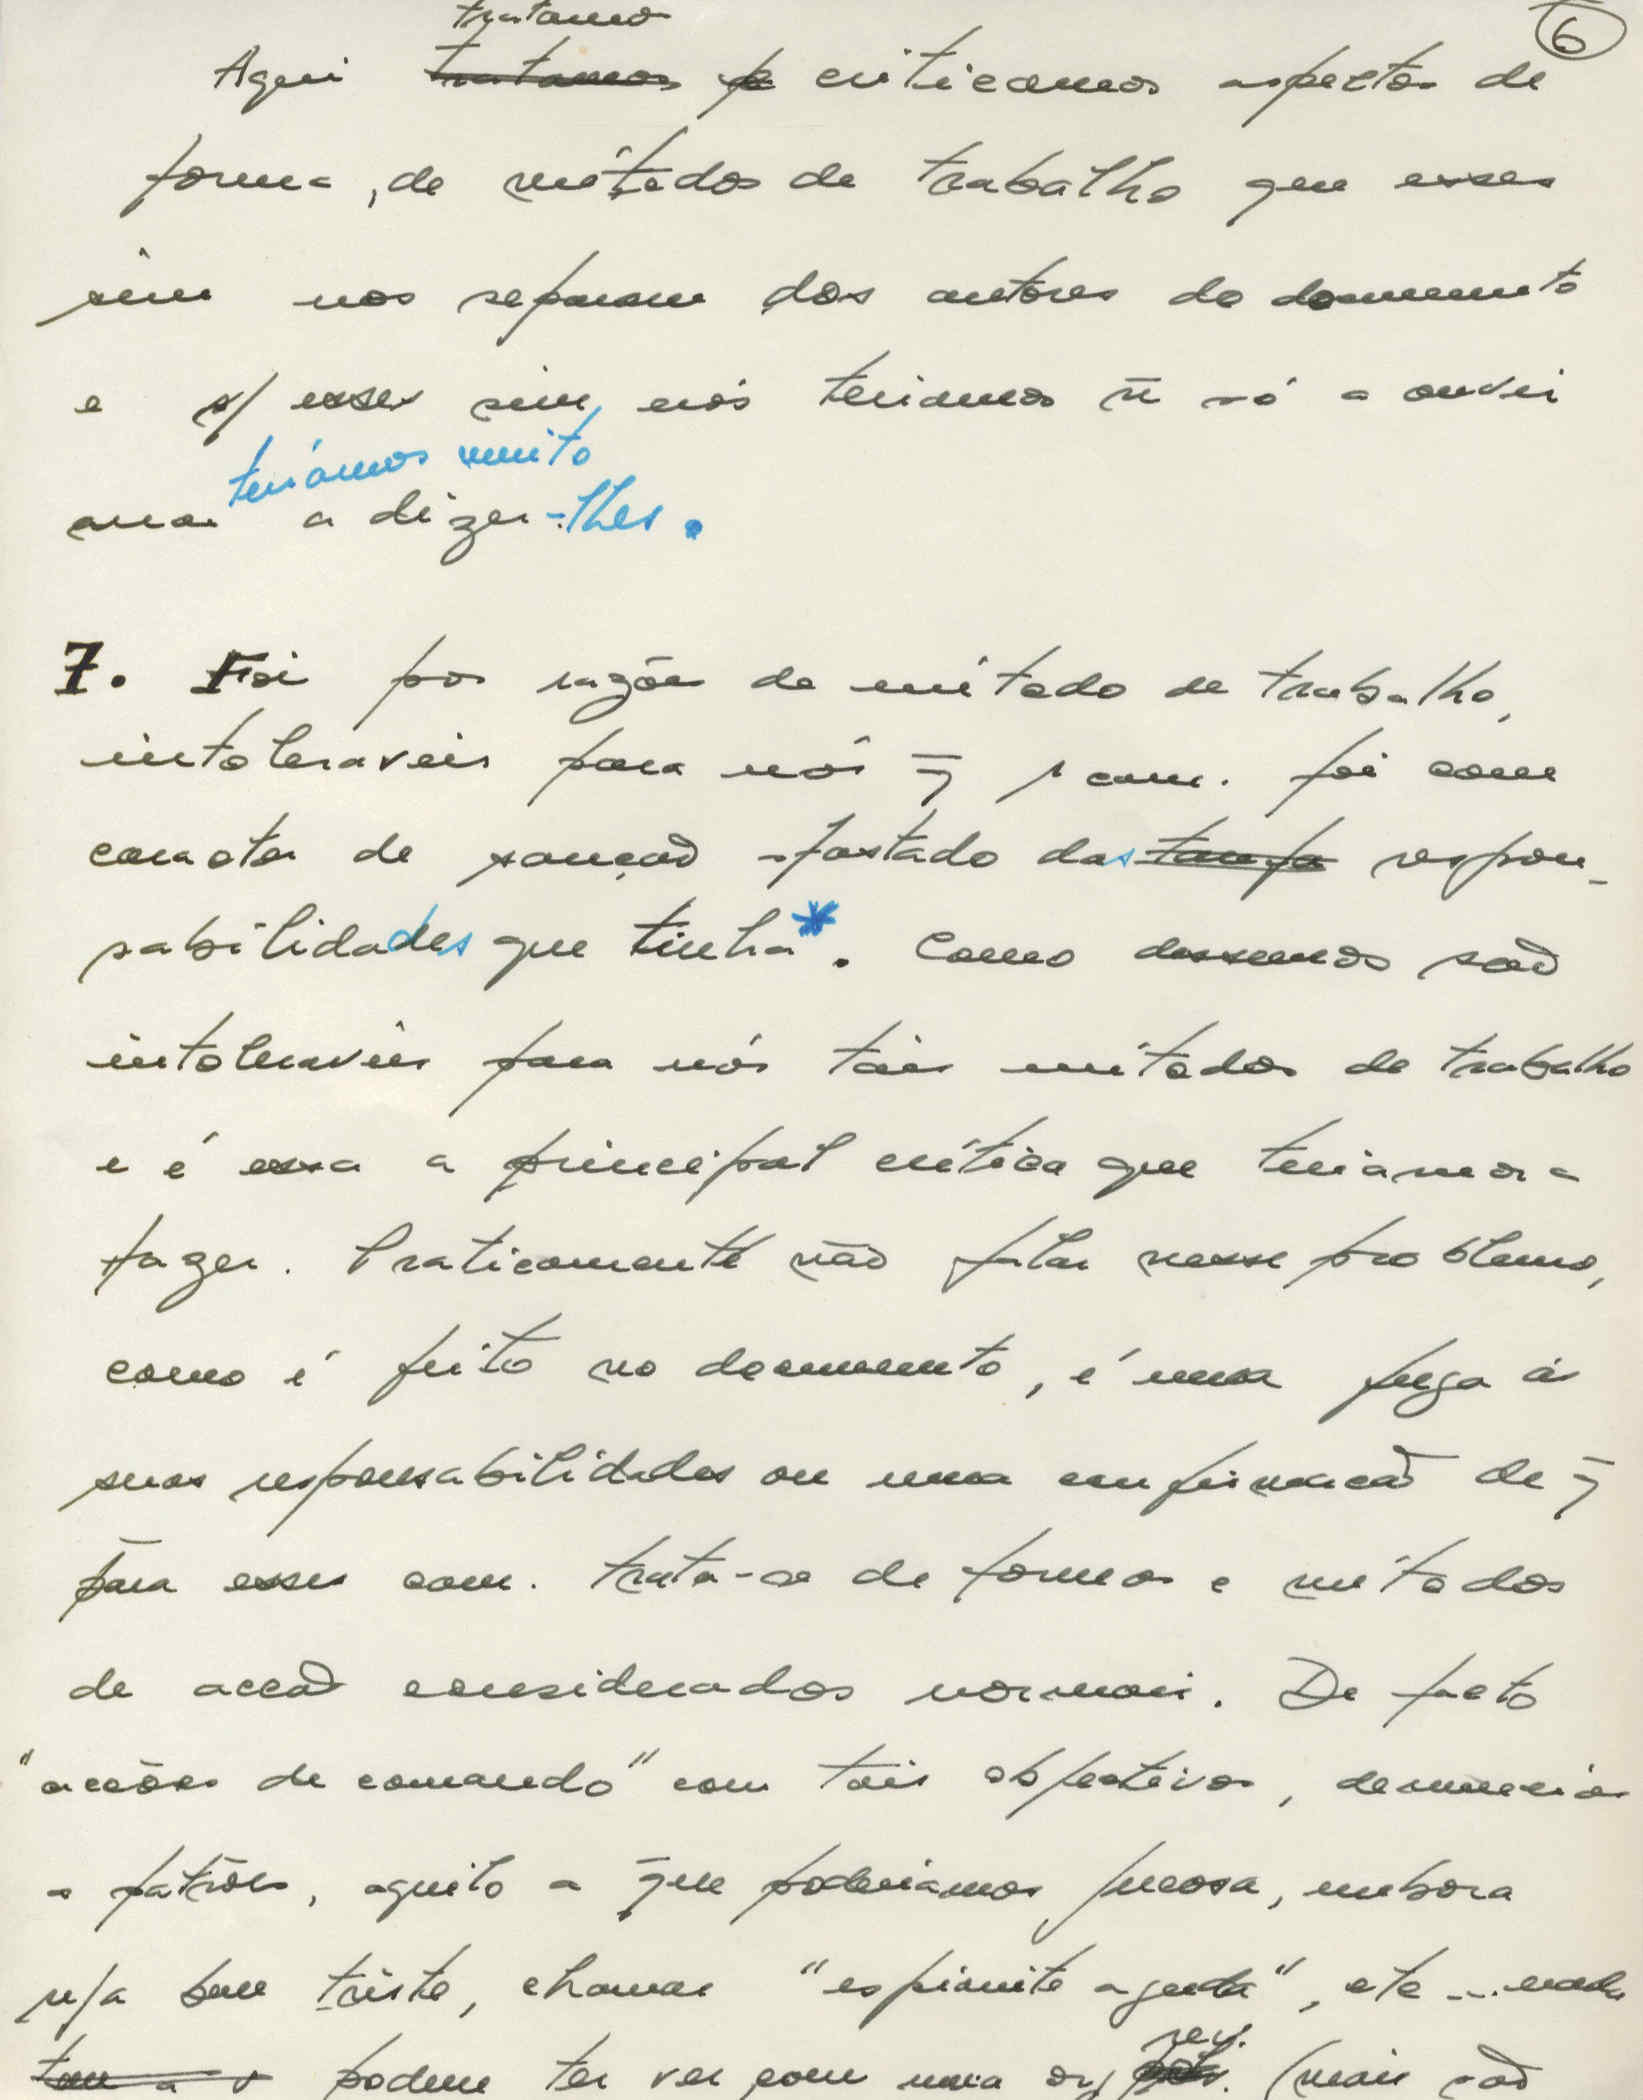 6
tratamo
Aqui tratamos p criticamos aspectos de
forma, de métodos de trabalho que esses
sim nos separam dos autores do documento
e s/ esses sim, nós teriamos ñ só a ouvir
teriamos muito
mas a dizer-lhes.
7. Foi por razões de método de trabalho,
intoleraveis para nós q̄ 1 cam. foi com
caracter de sanção afastado das responsabilidades que tinha*. Como dissemos são
intoleraveis para nós tais métodos de trabalho
e é essa a principal crítica que teriamos a
fazer. Praticamente não falar nesse problema,
como é feito no documento, é uma fuga ás
suas responsabilidades ou uma confirmação de q̄
para esses cam. trata-se de formas e métodos
de acção considerados normais. De facto
"acções de comando" com tais objectivos, denuncias
a patrões, aquilo a que poderiamos, embora
seja bem triste, chamar "espionite aguda", etc... nada
podem ter ver com uma org rev. (mais são